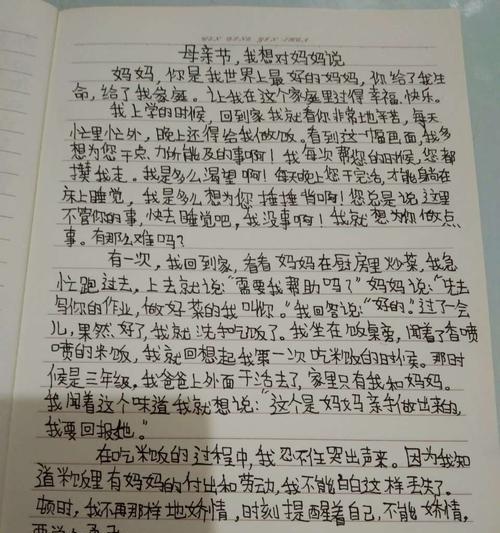 母亲节，我想对妈妈说
妈妈，你是我世界上最好的妈妈，你给了我生
命，给了我家庭。让我在这个家庭里过得幸福、快乐。
我上学的时候，回到家我就看你非常地辛苦，每天
忙里忙外，晚上还得给我做饭。看到这一幅画面，我多
想为您干点力所能及的事啊！我每次帮您的时候，您都
撵我走。我是多么渴望啊！每天晚上您干完活，才能躺在
床上睡觉，我是多么想为您捶捶背啊！您总是说，这里
不管你的事，快去睡觉吧，我没事啊！我就想为你做点
事。有那么难吗？
有一次，我回到家，看着妈妈在厨房里炒菜，我急
忙跑过去，上去就说“需要我帮助吗？”妈妈说：“先去
写你的作业，做好菜的我叫你。”我回答说：“好的。”过了一会
儿，果然，好了，我就洗和吃饭了。我坐在饭桌旁，闻着了香喷
喷的米饭，我就回想起我第一次吃米饭的时候。那时
候是三年级，我爸爸上外面干活去了，家里只有我和妈妈。
我闻着这个味道我就想说：“这个是妈妈亲手做出来的，
我要回报她。”
在吃米饭的过程中，我忍不住哭出声来。因为我知
道米饭里有妈妈的付出和劳动，我不能白白这样丢失了。
顿时，我不再那样地娇情，时刻提醒着自己，不能娇情，